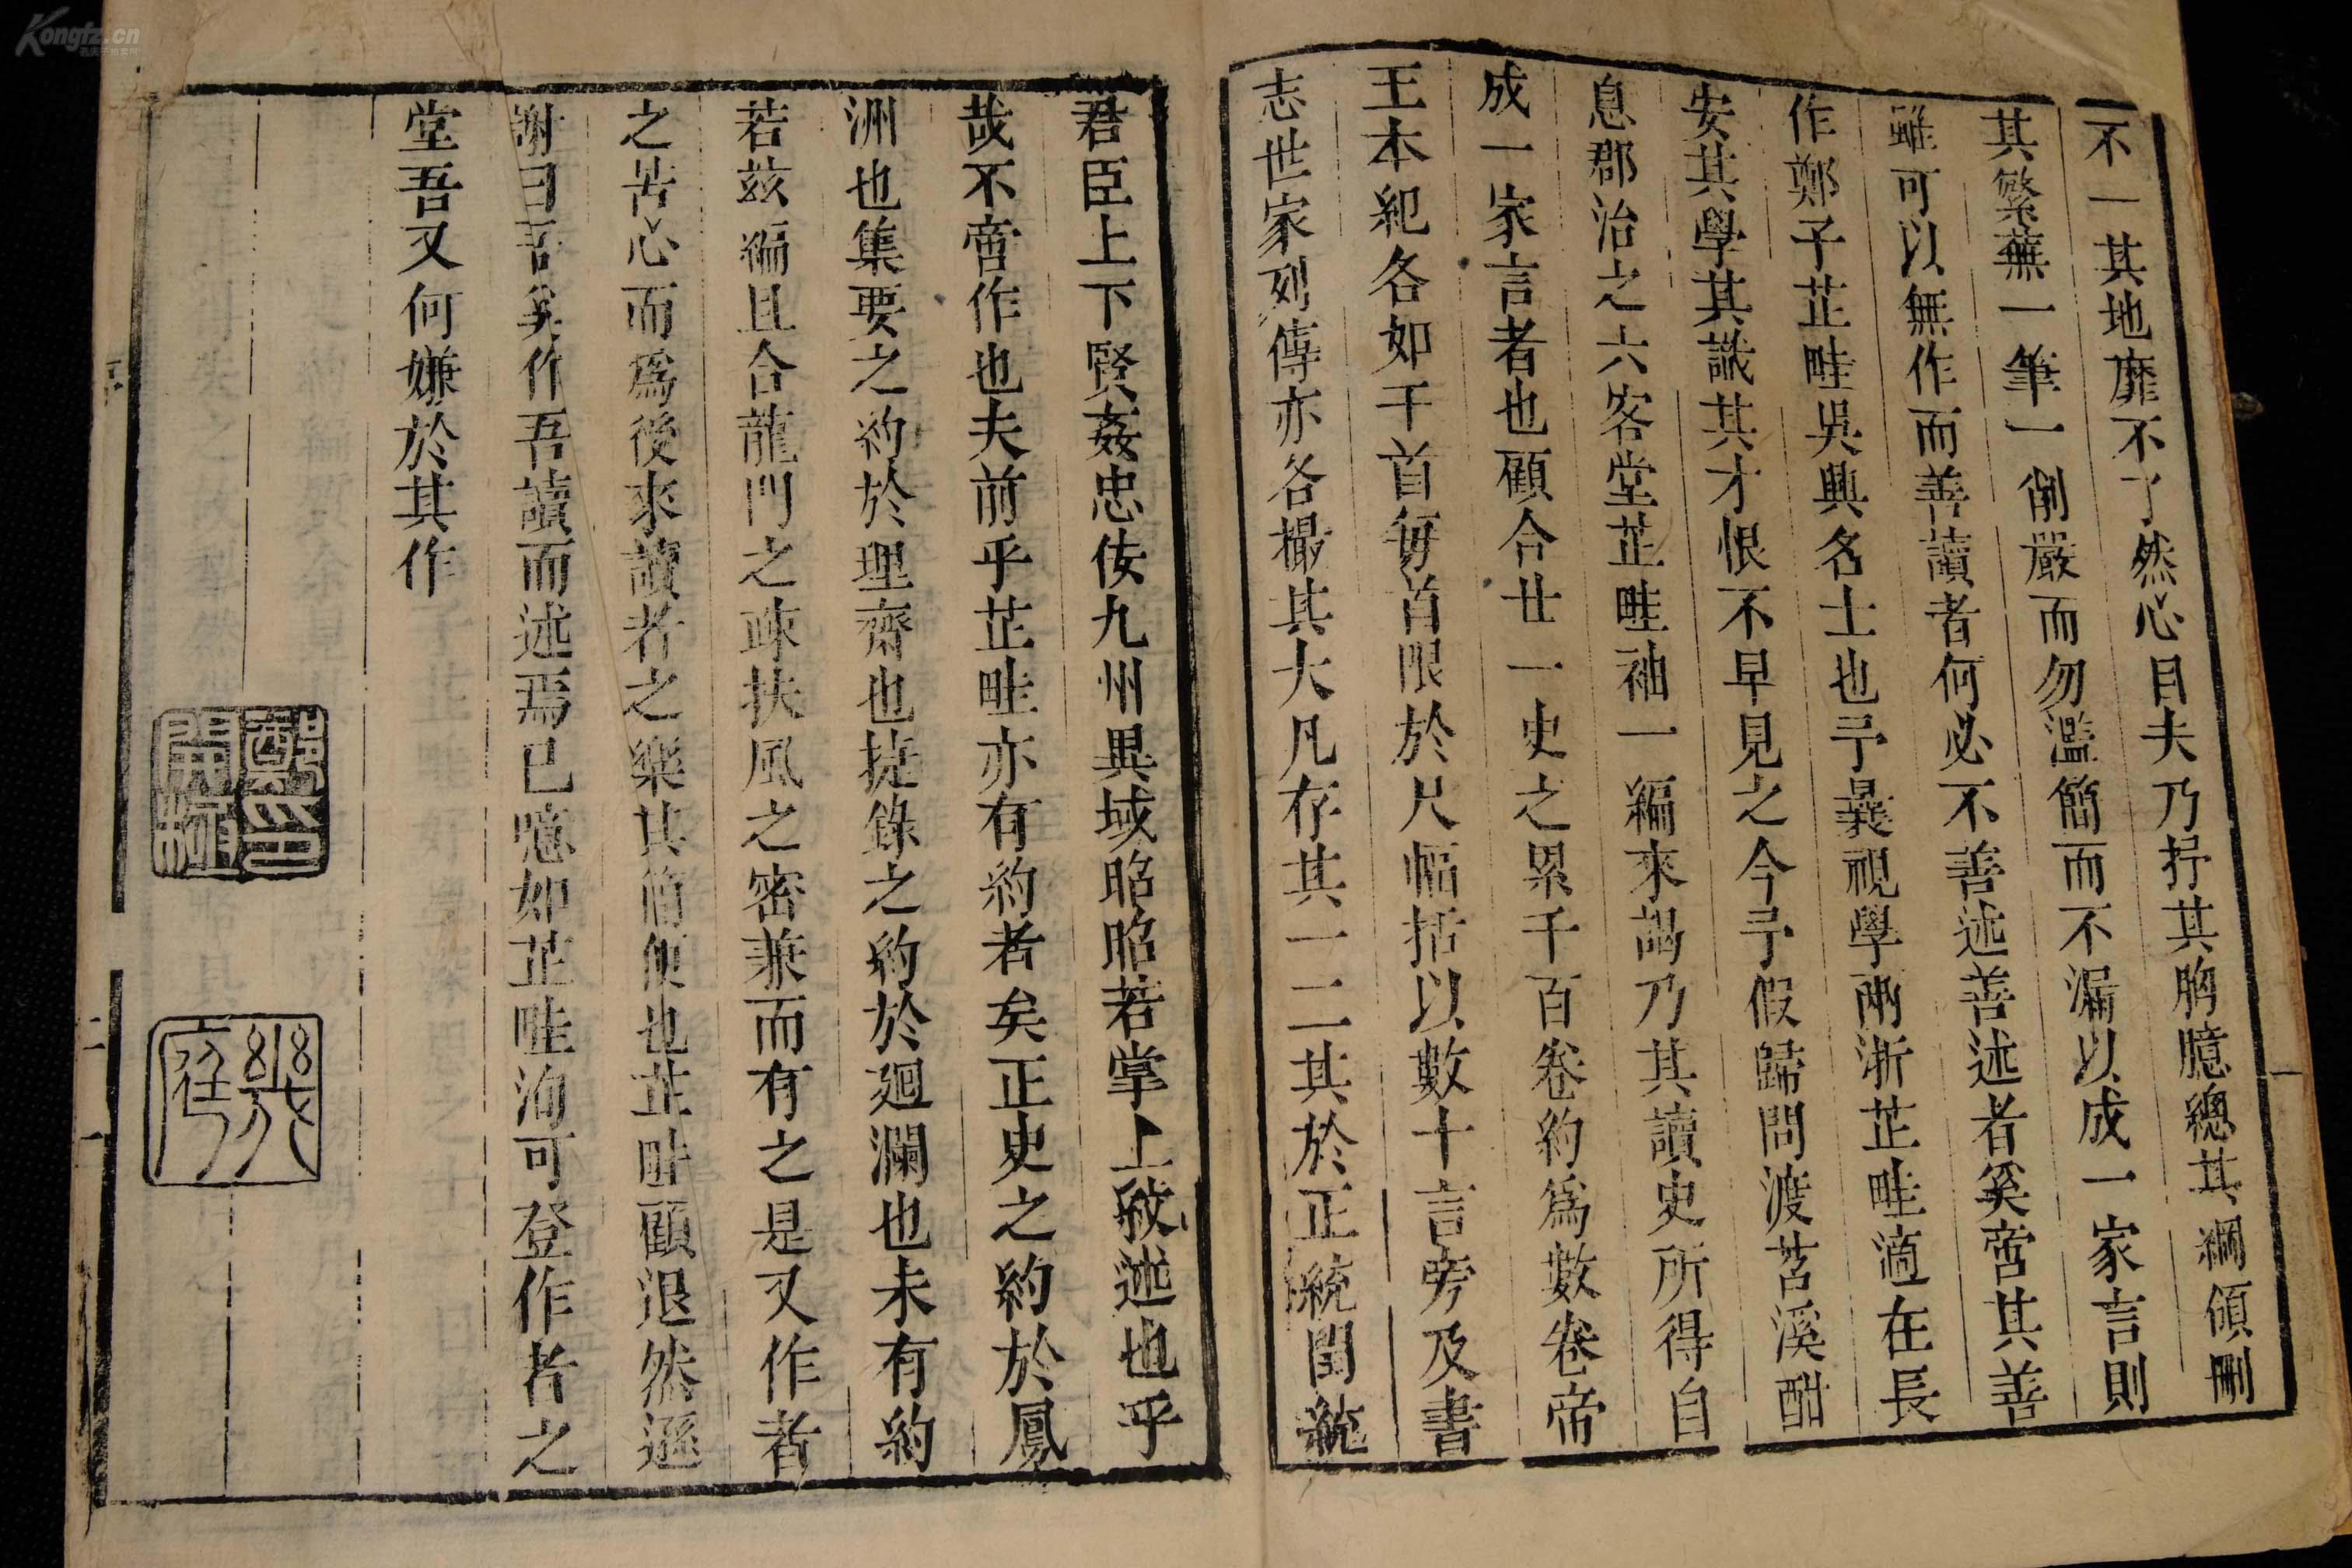 不一其地靡不了然心目夫乃抒其胸臆總其綱領刪
其繁蕪一筆一削嚴而勿濫簡而不漏以成一家言則
雖可以無作而善讀者何必不善述善述者奚啻其善
作鄭子芷畦吳興名士也予曩視學兩浙芷畦適在長
安其學其識其才恨不早見之今予假歸問渡苕溪酣
息郡治之六客堂芷畦袖一編來謁乃其讀史所得自
成一家言者也顧合廿一史之累千百卷約為數卷帝
王本紀各如干首每首限於尺幅括以數十言旁及書
志世家列傳亦各撮其大凡存其一二其於正統閏統
君臣上下賢姦忠佞九州異域昭昭若掌上敘述也乎
哉不啻作也夫前乎芷畦亦有約者矣正史之約於鳳
洲也集要之約於理齋也捷錄之約於廻瀾也未有約
若茲編且合龍門之疎扶風之密兼而有之是又作者
之苦心而爲後來讀者之樂其簡便也芷畦顧退然遜
謝曰吾奚作吾讀而述焉已噫如芷畦洵可登作者之
堂吾又何嫌於其作
鄭開極印
幾庭
二
一
Kongfz.cn